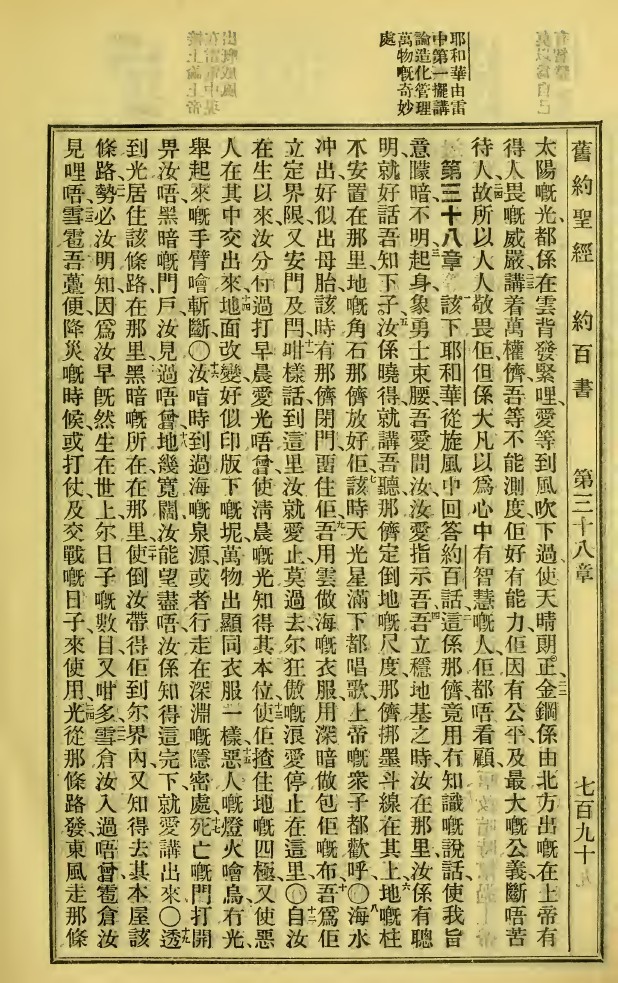 耶和華由雷
中第一擺講
論造化管理
萬物嘅奇妙
處
舊約聖經 約百書 第三十八章 七百九十
太陽嘅光都係在雲背發緊哩愛等到風吹下過使天晴朗正金鋼係由北方出嘅在上帝有
得人畏嘅威嚴講着萬權儕吾等不能測度佢好有能力佢因有公平及最大嘅公義斷唔苦
待人故所以人人敬畏佢但係大凡以爲心中有智慧嘅人佢都唔看顧
第三十八章 該下耶和華從旋風中回答約百話這係那儕竟用冇知識嘅說話使我旨
意矇暗不明起身象勇士束腰吾愛問汝汝愛指示吾吾立穩地基之時汝在那里汝係有聰
明就好話吾知下子汝係曉得就講吾聽那儕定倒地嘅尺度那儕挷墨斗線在其上地嘅柱
不安置在那里地嘅角石那儕放好佢該時天光星滿下都唱歌上帝嘅衆子都歡呼〇海水
沖出好似出母胎該時有那儕閉門畱住佢吾用雲做海嘅衣服用深暗做包佢嘅布吾爲佢
立定界限又安門及閂咁樣話到這里汝就愛止莫過去尔狂傲嘅浪愛停止在這里〇自汝
在生以來汝分付過打早晨愛光唔曾使淸晨嘅光知得其本位使佢揸住地嘅四極又使惡
人在其中交出來地面改變好似印版下嘅坭萬物出顯同衣服一樣惡人嘅燈火噲烏冇光
舉起來嘅手臂噲斬斷〇汝啃時到過海嘅泉源或者行走在深淵嘅隱密處死亡嘅門打開
畀汝唔黑暗嘅門戶汝見過唔曾地幾寬闊汝能望盡唔汝係知得這完下就愛講出來〇透
到光居住該條路在那里黑暗嘅所在在那里使倒汝帶得佢到尔界內又知得去其本屋該
條路勢必汝明知因爲汝早旣然生在世上尔日子嘅數目又咁多雪倉汝入過唔曾雹倉汝
見哩唔雪雹吾躉便降災嘅時候或打仗及交戰嘅日子來使用光從那條路發東風走那條